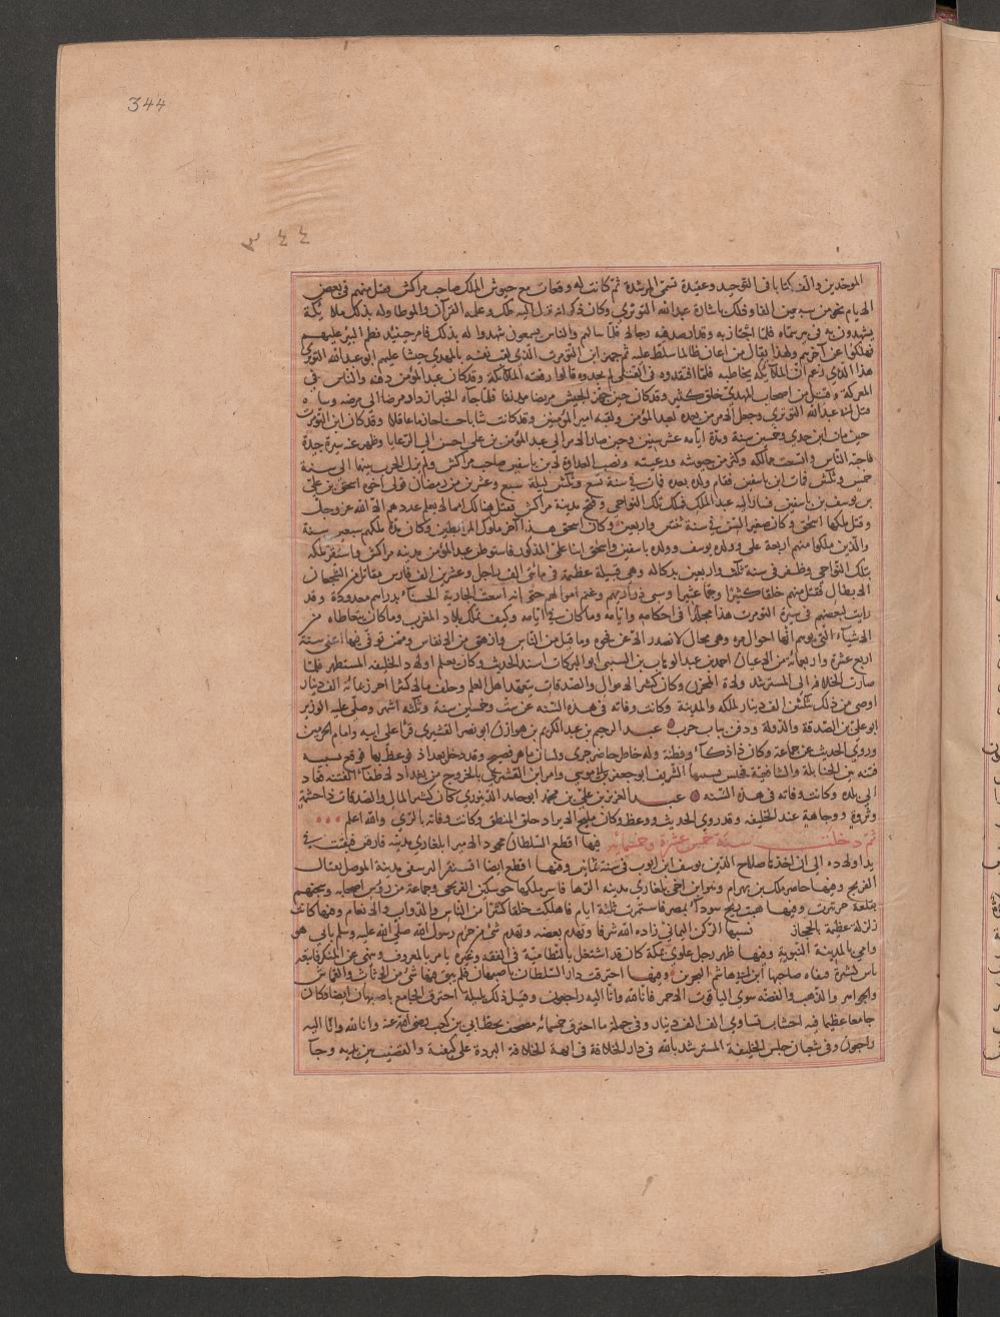 344
٣٤٤
الموحدين والف كتابا في التوحيد وعقيدة تسمى المرشدة ثم كانت له وقعات مع جيوش الملك صاحب مراكش فقتل منهم في بعض
الايام نحو من سبعين الفا وذلك باشارة عبدالله التومرتي وكان ذكر انه نزل اليه ملك وعلمه القرآن والموطا وله بذلك ملائكة
يشهدون به في بير سماه فلما اجتاز به وقد ارصد فيه رجالا فلما سالهم والناس يسمعون شهدوا له بذلك فامر حينئذ بطم البير عليهم
فهلكوا عن آخرهم ولهذا يقال من اعان ظالما سلط عليه ثم جهز ابن التومرت الذي لقب نفسه بالمهدي جيشا عليهم ابو عبد الله التومرتي
هذا الذي زعم ان الملائكة تخاطبه فلما افتقدوه في القتلى لم يجدوه قالوا رفعته الملائكة وقد كان عبد المؤمن دفنه والناس في
المعركة وقتل من اصحاب المهدي خلق كثير وقد كان حين جهز الجيش مريضا مدنفا فلما جاءه الخبر ازداد مرضا الى مرضه وساءه
قتل ابي عبد الله التومرتي وجعل الامر من بعده لعبد المؤمن ولقبه امير المؤمنين وقد كانت شابا حسنا حازما عاقلا وقد كان ابن التومرت
حين مات ابن احدى وخمسين سنة ومدة ايامه عشر سنين وحين صار الامر الى عبد المؤمن بن علي احسن الى الرعايا وظهر عنه سيرة جيدة
فاحبه الناس واتسعت ممالكه وكثر من جيوشه ورعيته ونصب العداوة لابن تاسفين صاحب مراكش ولم يزل الحرب بينهما الى سنة
خمس وثلثين فمات ابن تاسفين فقام ولده بعده فمات في سنة تسع وثلثين ليلة سبع وعشرين من رمضان فولى اخوه اسحق بن علي
بن يوسف بن تاسفين فسار اليه عبد الملك فملك تلك النواحي وفتح مدينة مراكش فقتل هنالك امما لا يعلم عددهم الا الله عز وجل
وقتل ملكها اسحق وكان صغير السن في سنة ثنتين واربعين وكان اسحق هذا آخر ملوك المرابطين وكان مدة ملكهم سبعين سنة
والذين ملكوا منهم اربعة علي وولده يوسف وولده تاسفين واسحق ابنا علي المذكور فاستوطن عبد المؤمن مدينة مراكش واستقر ملكه
بتلك النواحي وظفر في سنة ثلاث واربعين بدكاله وهي قبيلة عظيمة في مائتي الف راجل وعشرين الف فارس مقاتل من الشجعان
الابطال فقتل منهم خلقا كثيرا وجما غفيرا وسبى ذراريهم وغنم اموالهم حتى انه ابيعت الجارية الحسناء بدراهم معدودة وقد
رايت لبعضهم في سيرة التومرت هذا مجلدا في احكامه وايامه وما كان في ايامه وكيف تملك بلاد المغرب وما كان يتعاطاه من
الاشياء التي يوهم انها احوال بره وهي محال لا تصدر الا عن فجره وما قتل من الناس وازهق من الانفاس وممن توفي بها اعني سنة
اربع عشرة وخمسمائة من الاعيان احمد بن عبد الوهاب بن السيبي ابو البركات اسند الحديث وكان يعلم اولاد الخليفة المستظهر فلما
صارت الخلافة الى المسترشد ولاه المخزن وكان كثير الاموال والصدقات يتعهد اهل العلم وخلف مالا كثيرا احرز بمائة الف دينار
اوصى من ذلك بثلثين الف دينار لمكة والمدينة وكانت وفاته في هذه السنه عن ست وخمسين سنة وثلثة اشهر وصلى عليه الوزير
ابو علي بن الصدقة والدولة ودفن بباب حرب عبد الرحيم بن عبد الكريم بن هوازن ابو نصر القشيري قرأ على ابيه وامام الحرمين
وروى الحديث عن جماعة وكان ذا ذكاء وفطنة وله خاطر حاضر جري ولسان ماهر فصيح وقد دخل بغداد فوعظ بها فوقع بسببه
فتنة بين الحنابلة والشافعية فحبس بسببها الشريف ابو جعفر بن ابي موسى وامر ابن القشيري بالخروج من بغداد لاطفاء الفتنة فعاد
الى بلده وكانت وفاته في هذه السنه عبد العزيز بن علي بن محمد ابو حامد الدينوري كان كثير المال والصدقات ذا حشمة
وثروة ووجاهة عند الخليفه وقد روى الحديث ووعظ وكان مليح الايراد حلو المنطق وكانت وفاته بالري والله اعلم
ثم دخلت سنة خمس عشرة وخمسمائة فيها اقطع السلطان محمود الامير ايلغازي مدينة ميافارقين فبقيت في
يد اولاده الى ان اخذها صلاح الدين يوسف بن ايوب في سنة ثمانين وفيها اقطع ايضا اقسنقر البرسقي مدينة الموصل لقتال
الفرنج وفيها حاصر ملك بن بهرام وهو ابن اخي ايلغازي مدينه الرها فاسر ملكها جوسكين الفرنجي وجماعة من رؤس اصحابه وسجنهم
بقلعة خرتبرت وفيها هبت ريح سوداء بمصر فاستمرت ثلثة ايام فاهلكت خلقا كثيرا من الناس والدواب والانعام وفيها كانت
زلزلة عظيمة بالحجاز تسببها الركن اليماني زاده الله شرفا وتهدم بعضه وتهدم شئ من حرم رسول الله صلى الله عليه وسلم بابي هو
وامي بالمدينة النبوية وفيها ظهر رجل علوي بمكة كان قد اشتغل بالنظامية في الفقه وغيره يامر بالمعروف وينهى عن المنكر فاتبعه
ناس كثيرة فنفاه صاحبها ابن ابي هاشم الى البحرين وفيها احترقت دار السلطان باصبهان فلم يبق فيها شئ من الاثاث والقماش
والجواهر والذهب والفضة سوى الياقوت الاحمر فانا لله وانا اليه راجعون وقبل ذلك بليلة احترق الجامع باصبهان ايضا وكان
جامعا عظيما فيه اخشاب تساوي الف الف دينار وفي جملة ما احترق خمسمائة مصحف بخط ابي بن كعب رضي الله عنه وانا لله وانا اليه
راجعون وفي شعبان جلس الخليفة المسترشد بالله في دار الخلافة في ابهة الخلافة البردة على كتفيه والقضيب بين يديه وجاء